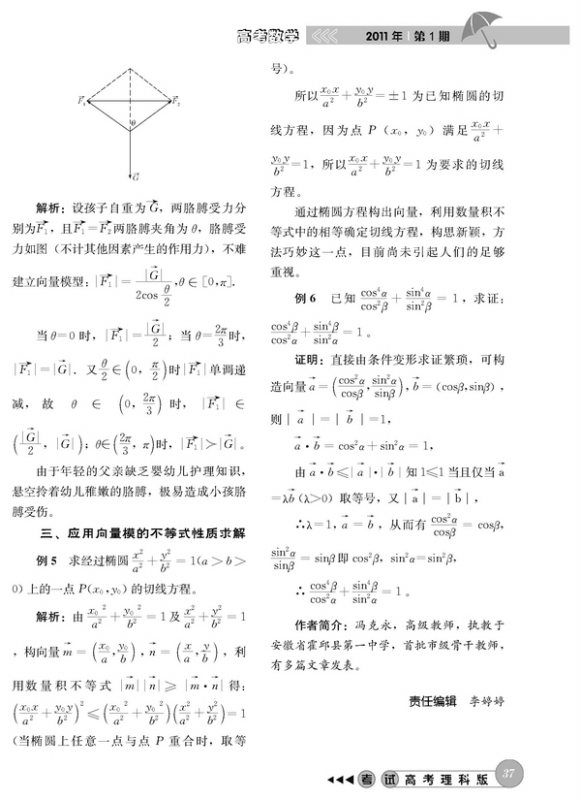 高考数学 2011年 第1期
F₁ F₂
θ
G
解析：设孩子自重为G⃗，两胳膊受力分
别为F₁⃗，且F₁⃗=F₂⃗两胳膊夹角为θ，胳膊受
力如图（不计其他因素产生的作用力），不难
建立向量模型：|F₁⃗|=|G⃗|/(2cos θ/2),θ∈[0,π].
当θ=0时，|F₁⃗|=|G⃗|/2；当θ=2π/3时，
|F₁⃗|=|G⃗|．又θ/2∈(0, π/2)时|F₁⃗|单调递
减，故 θ ∈ (0, 2π/3) 时，|F₁⃗| ∈
(|G⃗|/2, |G⃗|)；θ∈(2π/3, π)时，|F₁⃗|>|G⃗|。
由于年轻的父亲缺乏婴幼儿护理知识，
悬空拎着幼儿稚嫩的胳膊，极易造成小孩胳
膊受伤。
三、应用向量模的不等式性质求解
例5 求经过椭圆x²/a²+y²/b²=1(a>b>
0)上的一点P(x₀,y₀)的切线方程。
解析：由x₀²/a²+y₀²/b²=1及x²/a²+y²/b²=1
，构向量m⃗=(x₀/a,y₀/b),n⃗=(x/a,y/b)，利
用数量积不等式 |m⃗||n⃗|⩾|m⃗·n⃗|得：
(x₀x/a²+y₀y/b²)²⩽(x₀²/a²+y₀²/b²)(x²/a²+y²/b²)=1
（当椭圆上任意一点与点P重合时，取等
号）。
所以x₀x/a²+y₀y/b²=±1为已知椭圆的切
线方程，因为点P（x₀，y₀）满足x₀x/a²+
y₀y/b²=1，所以x₀x/a²+y₀y/b²=1为要求的切线
方程。
通过椭圆方程构出向量，利用数量积不
等式中的相等确定切线方程，构思新颖，方
法巧妙这一点，目前尚未引起人们的足够
重视。
例6 已知cos⁴α/cos²β+sin⁴α/sin²β=1，求证：
cos⁴β/cos²α+sin⁴β/sin²α=1。
证明：直接由条件变形求证繁琐，可构
造向量a⃗=(cos²α/cosβ,sin²α/sinβ),b⃗=(cosβ,sinβ)，
则|a⃗|=|b⃗|=1，
a⃗·b⃗=cos²α+sin²α=1，
由a⃗·b⃗⩽|a⃗|·|b⃗|知1⩽1当且仅当a⃗
=λb⃗(λ>0)取等号，又|a⃗|=|b⃗|，
∴λ=1,a⃗=b⃗，从而有cos²α/cosβ=cosβ,
sin²α/sinβ=sinβ即cos²β，sin²α=sin²β，
∴cos⁴β/cos²α+sin⁴β/sin²α=1。
作者简介：冯克永，高级教师，执教于
安徽省霍邱县第一中学，首批市级骨干教师，
有多篇文章发表。
责任编辑 李婷婷
考试高考理科版 37